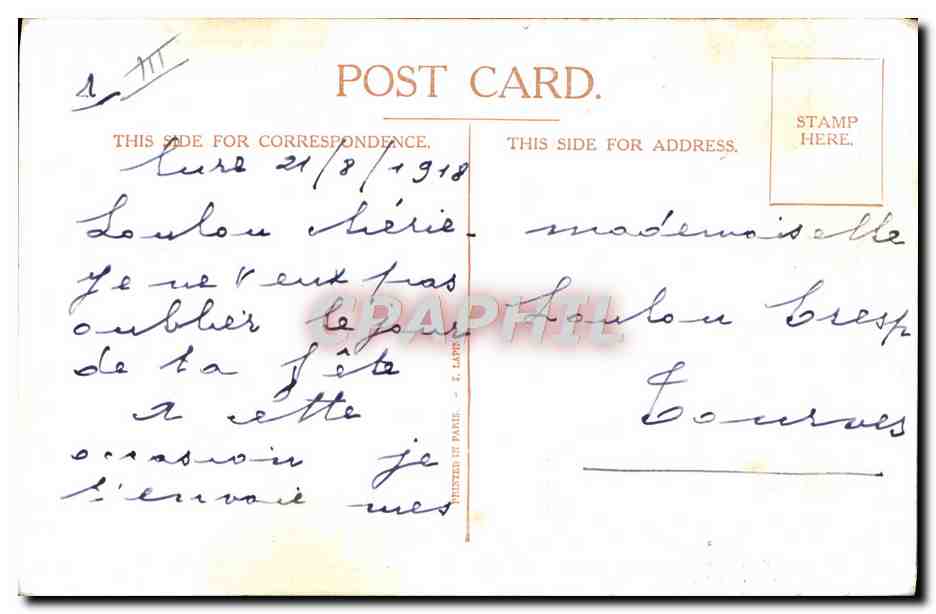 1 III
POST CARD.
THIS SIDE FOR CORRESPONDENCE.
THIS SIDE FOR ADDRESS.
STAMP
HERE.
21/8/1918
Loulou chérie
je ne veux pas
oublier le jour
de ta fête
A cette
occasion je
t'envoie mes
mademoiselle
Loulou Cresp
Tourves
PRINTED IN PARIS. - I. LAPIN
CPAPHIL